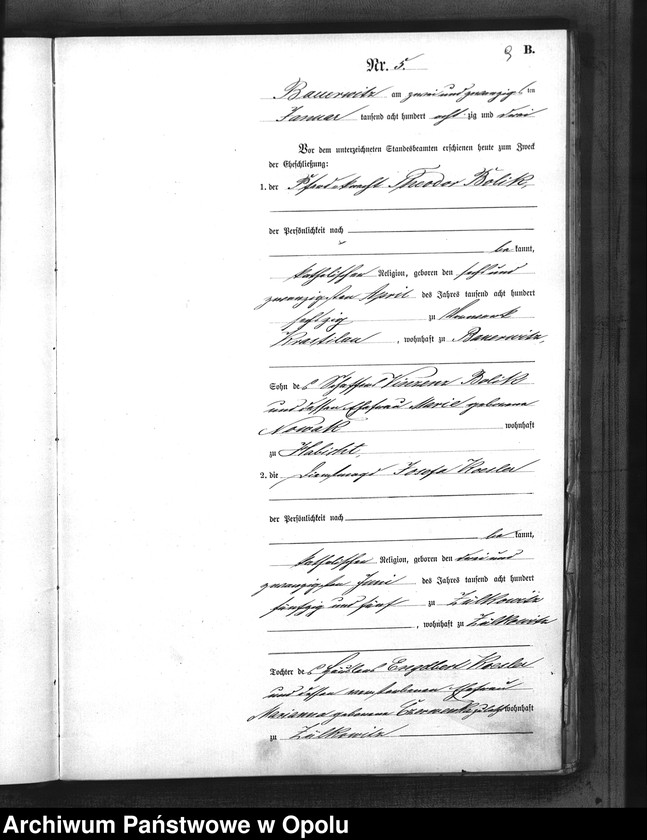 9 B.
Nr. 5.
Bauerwitz am zwei und zwanzigsten
Januar tausend acht hundert acht zig und drei
Vor dem unterzeichneten Standesbeamten erschienen heute zum Zweck
der Eheschließung:
1. der Pferdeknecht Theodor Bolik,
der Persönlichkeit nach
be kannt,
katholischer Religion, geboren den sechs und
zwanzigsten April des Jahres tausend acht hundert
sechzig zu
Krastillau, wohnhaft zu Bauerwitz,
Sohn des Schaffers Vinzenz Bolik
und dessen Ehefrau Marie geborene
Nowak wohnhaft
zu Habicht,
2. die Dienstmagd Josefa Koesler
der Persönlichkeit nach
be kannt,
katholischer Religion, geboren den drei und
zwanzigsten Juni des Jahres tausend acht hundert
fünfzig und fünf zu Zülkowitz
, wohnhaft zu Zülkowitz
Tochter des Häuslers Engelbert Koesler
und dessen verstorbenen Ehefrau
Marianna geborene zuletzt wohnhaft
zu Zülkowitz
Archiwum Państwowe w Opolu